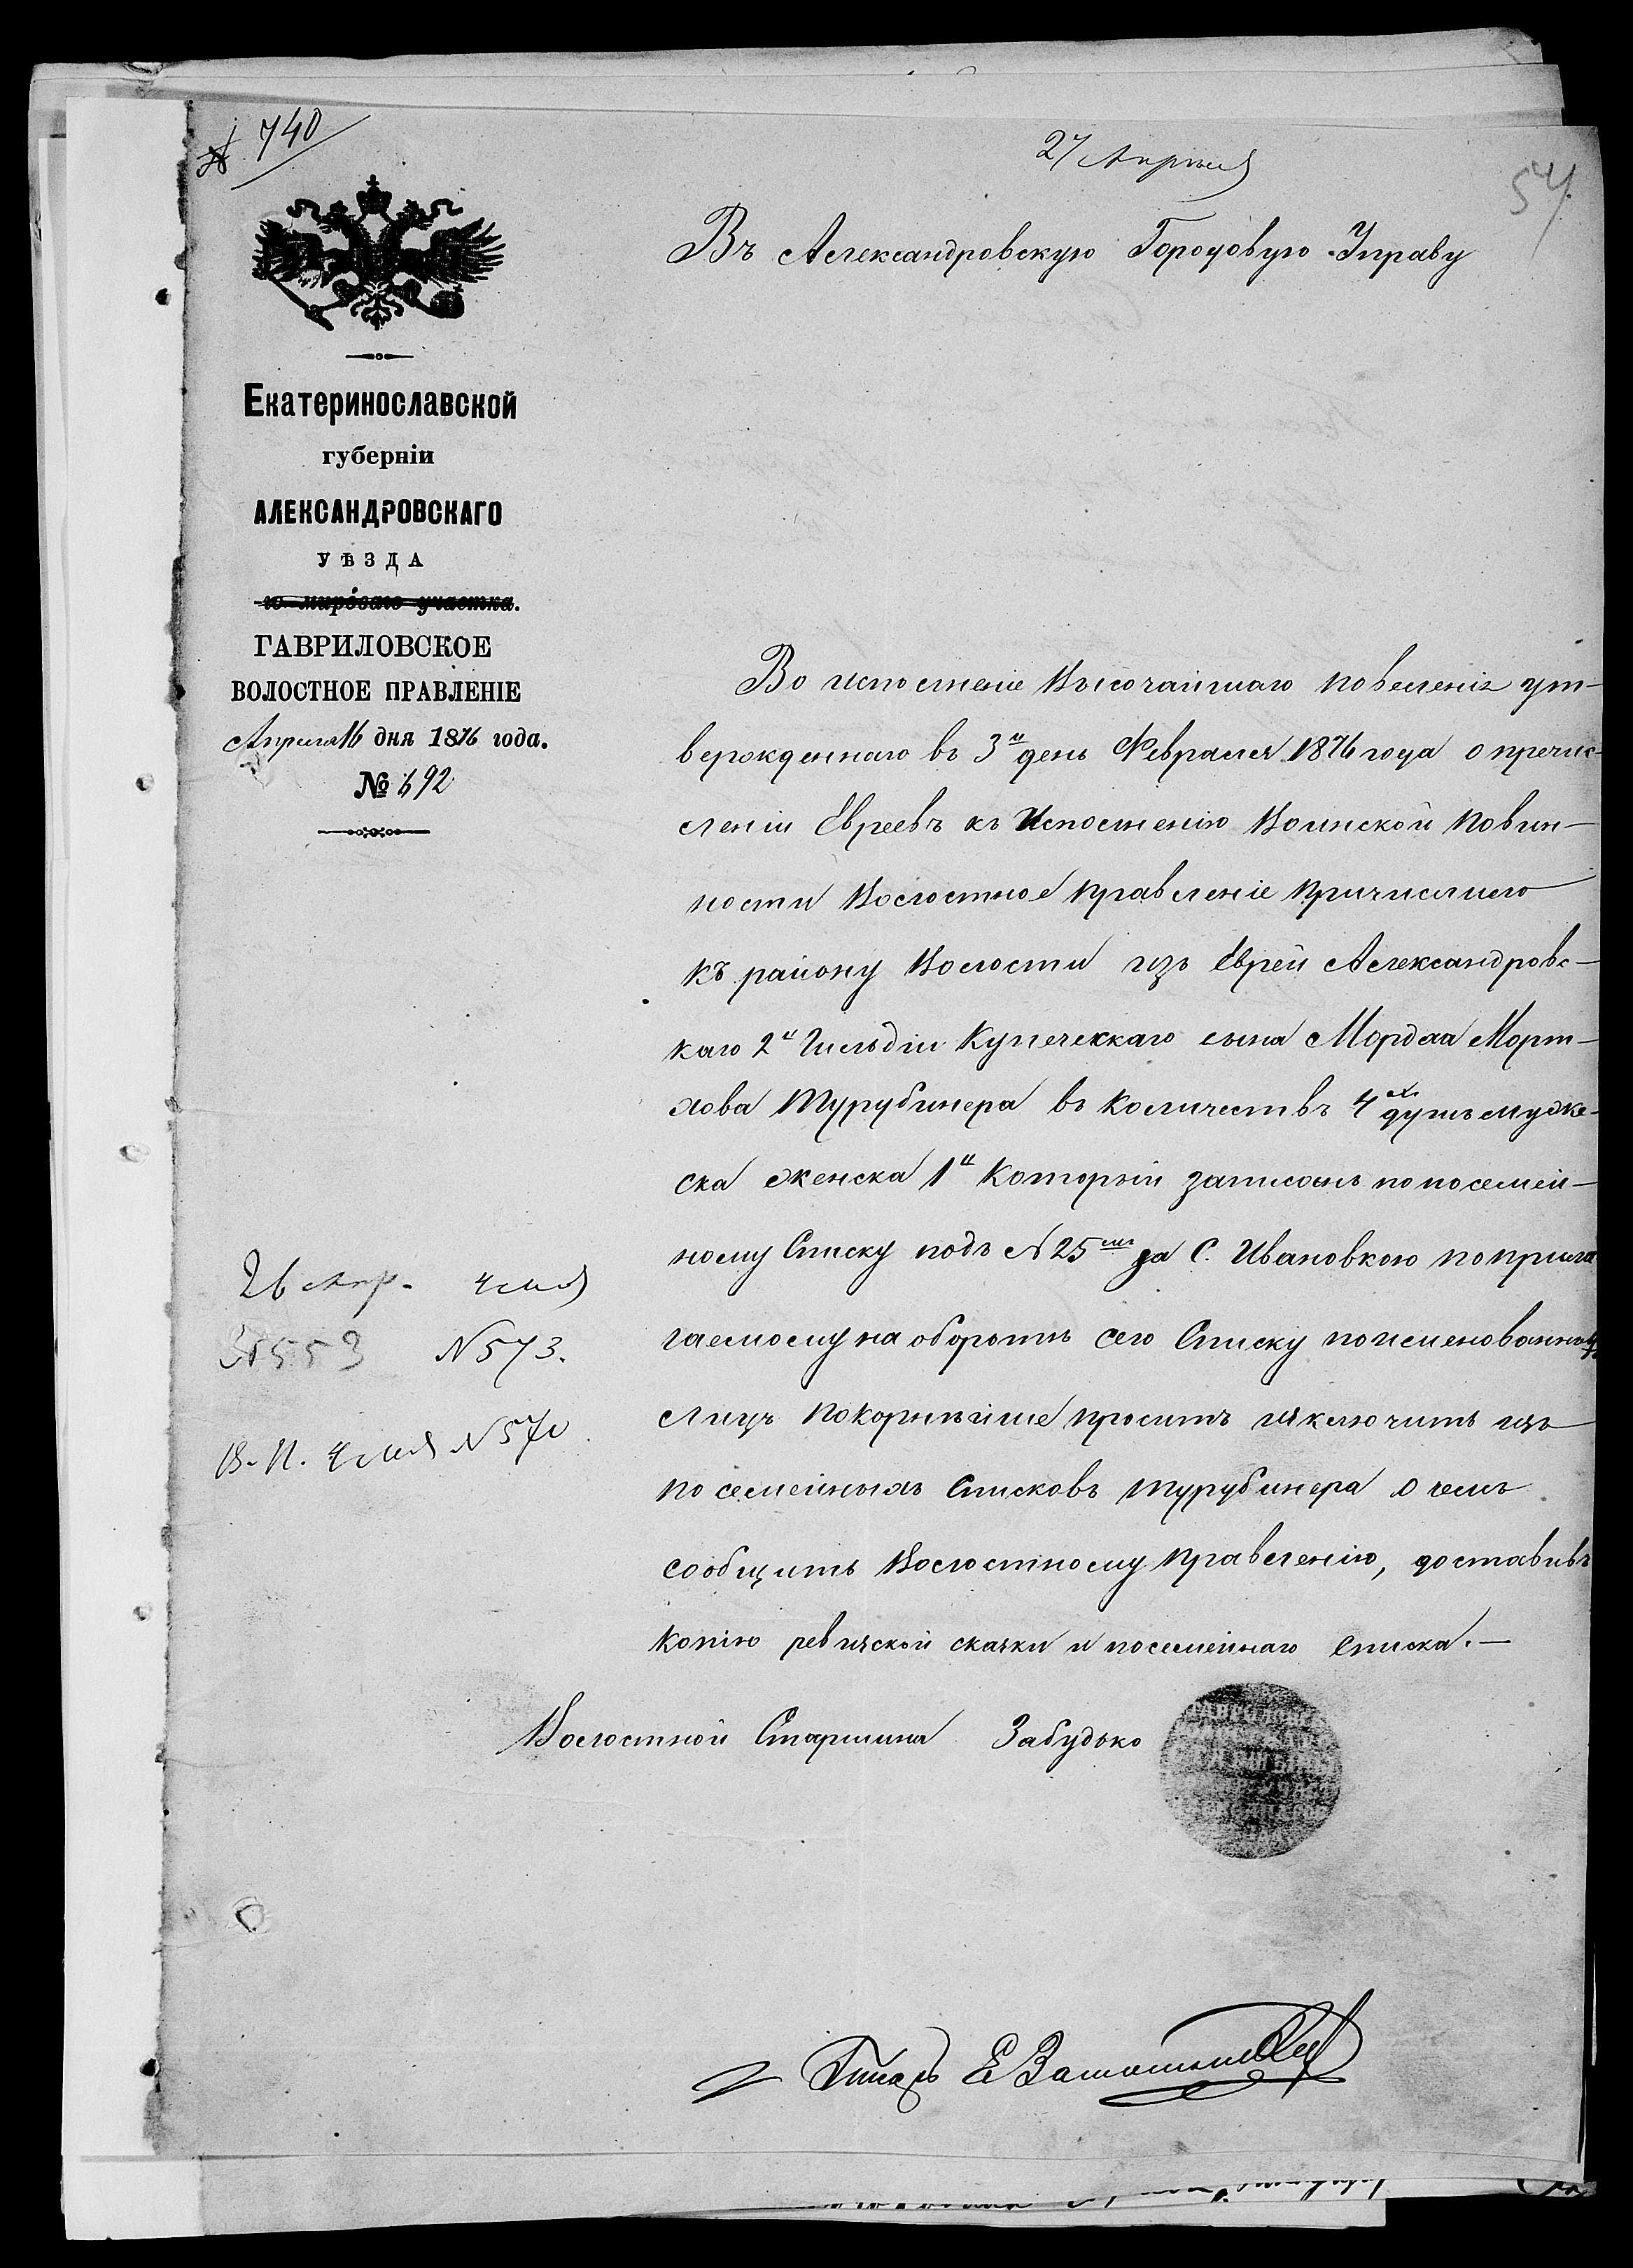 № 740
27 Апрѣля
54
Въ Александровскую Городовую Управу
Екатеринославской
губерніи
АЛЕКСАНДРОВСКАГО
УѢЗДА
го мироваго участка.
ГАВРИЛОВСКОЕ
ВОЛОСТНОЕ ПРАВЛЕНІЕ
Апреля 16 дня 1876 года.
№ 692
Во исполненіе Высочайшаго повеленія ут-
вержденнаго въ 3й день Февраля 1876 года о пречис-
леніи Евреевъ къ Исполненію Воинской повин-
ности Волостное Правленіе причислило
къ району Волости изъ Еврей Александровс-
каго 2й Гильдіи Купеческаго сына Мордха Морт-
хова Турубинера въ количествѣ 4хъ душъ мужс-
ска женска 1й Который записанъ по посемей-
ному Списку подъ № 25мъ за С. Ивановкою по прила
гаемому на оборотѣ сего Списку поименованныхъ
лицъ покорнѣйше проситъ исключить изъ
посемейныхъ Списковъ Турубинера о чемъ
сообщить Волостному Правленію, доставивъ
копію ревизской сказки и посемейнаго списка.—
26 Апр. числ
№ 553 № 573.
В. П. числ № 570
Волостной Старшина Забудько
Писарь Е